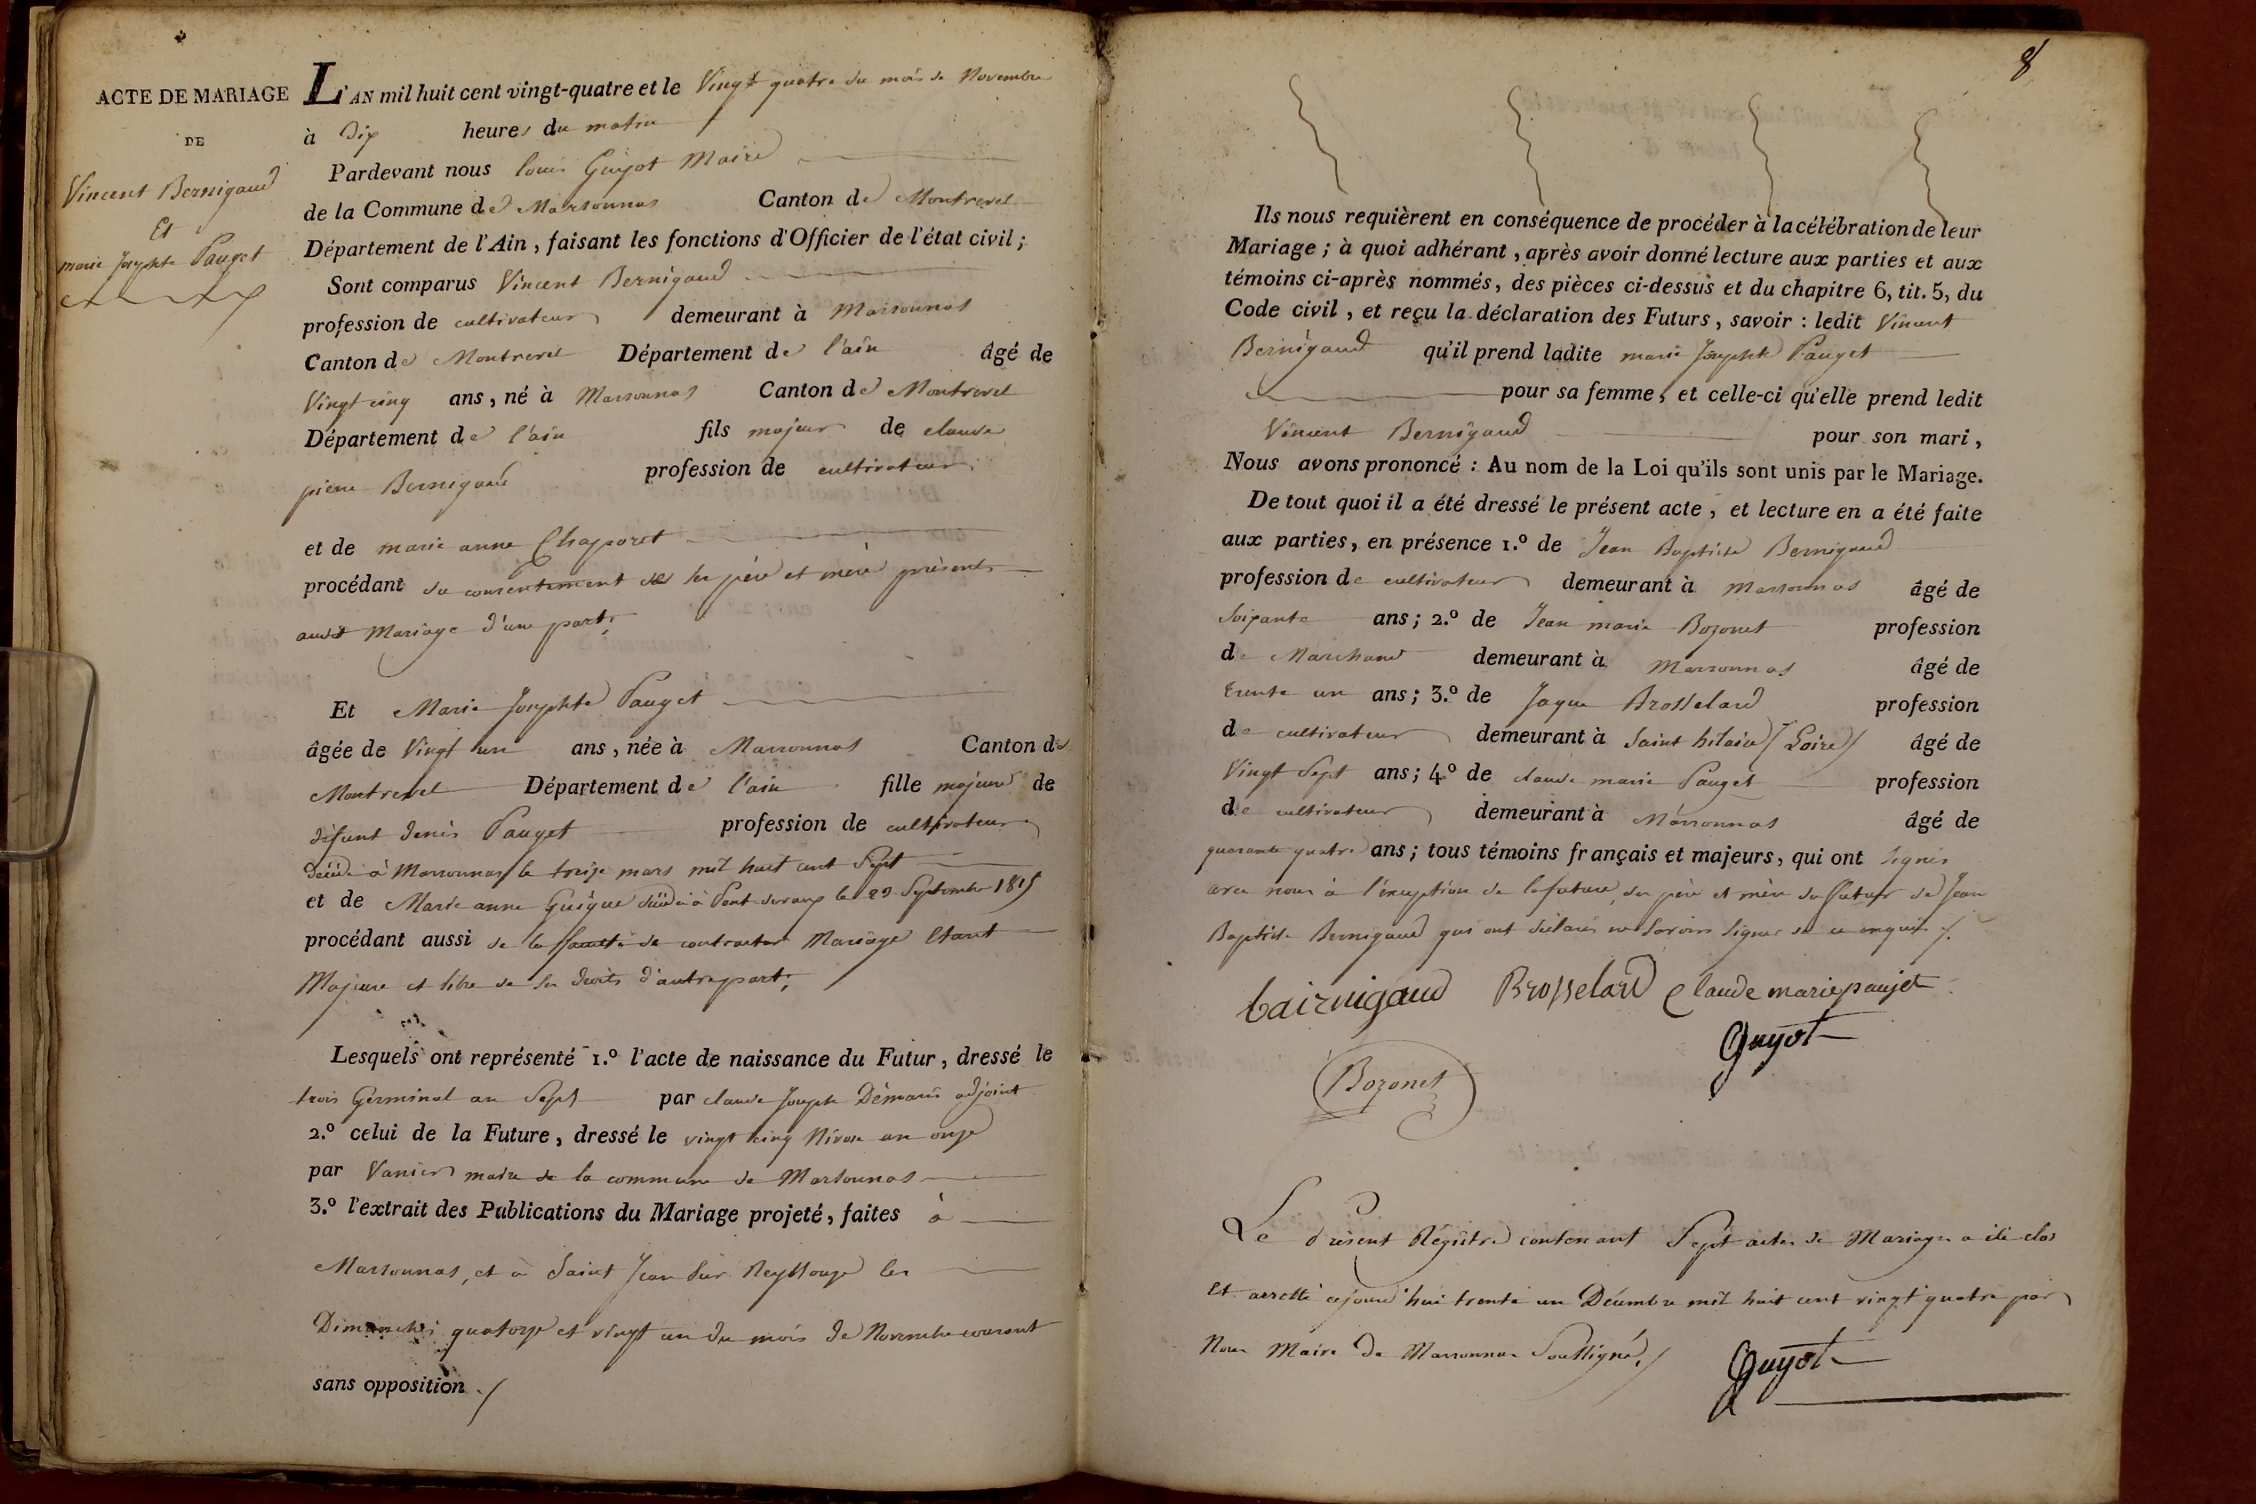 ACTE DE MARIAGE
DE
Vincent Bernigaud
Et
marie Josephte Pauget
L'AN mil huit cent vingt-quatre et le Vingt quatre du mois de Novembre
à dix heures du matin
Pardevant nous louis Guyot Maire
de la Commune de Marsonnas Canton de Montrevel
Département de l'Ain, faisant les fonctions d'Officier de l'état civil;
Sont comparus Vincent Bernigaud
profession de cultivateur demeurant à Marsonnas
Canton de Montrevel Département de l'ain âgé de
Vingt cinq ans, né à Marsonnas Canton de Montrevel
Département de l'ain fils majeur de claude
pierre Bernigaud profession de cultivateur
et de marie anne Chaporet
procédant du consentement de ses père et mère présents
audit Mariage d'une part;
Et Marie Josephte Pauget
âgée de Vingt un ans, née à Marsonnas Canton de
Montrevel Département de l'ain fille majeure de
défunt denis Pauget profession de cultivateur
décédé à Marsonnas le treize mars mil huit cent Sept
et de Marie anne Guigue décédée à Pont devaux le 29 Septembre 1815
procédant aussi de la faculté de contracter Mariage Etant
Majeure et libre de ses droits d'autre part;
Lesquels ont représenté 1.º l'acte de naissance du Futur, dressé le
trois Germinal an Sept par claude Joseph adjoint
2.º celui de la Future, dressé le vingt cinq Nivose an onze
par Vanier maire de la commune de Marsonnas
3.º l'extrait des Publications du Mariage projeté, faites à
Marsonnas, et à Saint Jean Sur Reyssouze les
Dimanches quatorze et vingt un du mois de Novembre courant
sans opposition ./
8
Ils nous requièrent en conséquence de procéder à la célébration de leur
Mariage; à quoi adhérant, après avoir donné lecture aux parties et aux
témoins ci-après nommés, des pièces ci-dessus et du chapitre 6, tit. 5, du
Code civil, et reçu la déclaration des Futurs, savoir: ledit Vincent
Bernigaud qu'il prend ladite marie Josephte Pauget
pour sa femme, et celle-ci qu'elle prend ledit
Vincent Bernigaud pour son mari,
Nous avons prononcé: Au nom de la Loi qu'ils sont unis par le Mariage.
De tout quoi il a été dressé le présent acte, et lecture en a été faite
aux parties, en présence 1.º de Jean Baptiste Bernigaud
profession de cultivateur demeurant à Marsonnas âgé de
Soixante ans; 2.º de Jean marie Bozonet profession
de Marchand demeurant à Marsonnas âgé de
trente un ans; 3.º de Jaque Brosselard profession
de cultivateur demeurant à Saint hilaire (Loire) âgé de
Vingt Sept ans; 4º de claude marie Pauget profession
de cultivateur demeurant à Marsonnas âgé de
quarante quatre ans; tous témoins français et majeurs, qui ont signés
avec nous à l'éxception de la future, des père et mère du futur de Jean
Baptiste Bernigaud qui ont déclarés ne Savoir Signer de ce enquis ./.
bairnigaud Brosselard Claude marie paujet
Guyot
Bozonet
Le Présent Régistre contenant Sept actes de Mariage a été clos
Et arretté cejourd'hui trente un Décembre mil huit cent vingt quatre par
Nous Maire de Marsonnas Soussigné./
Guyot